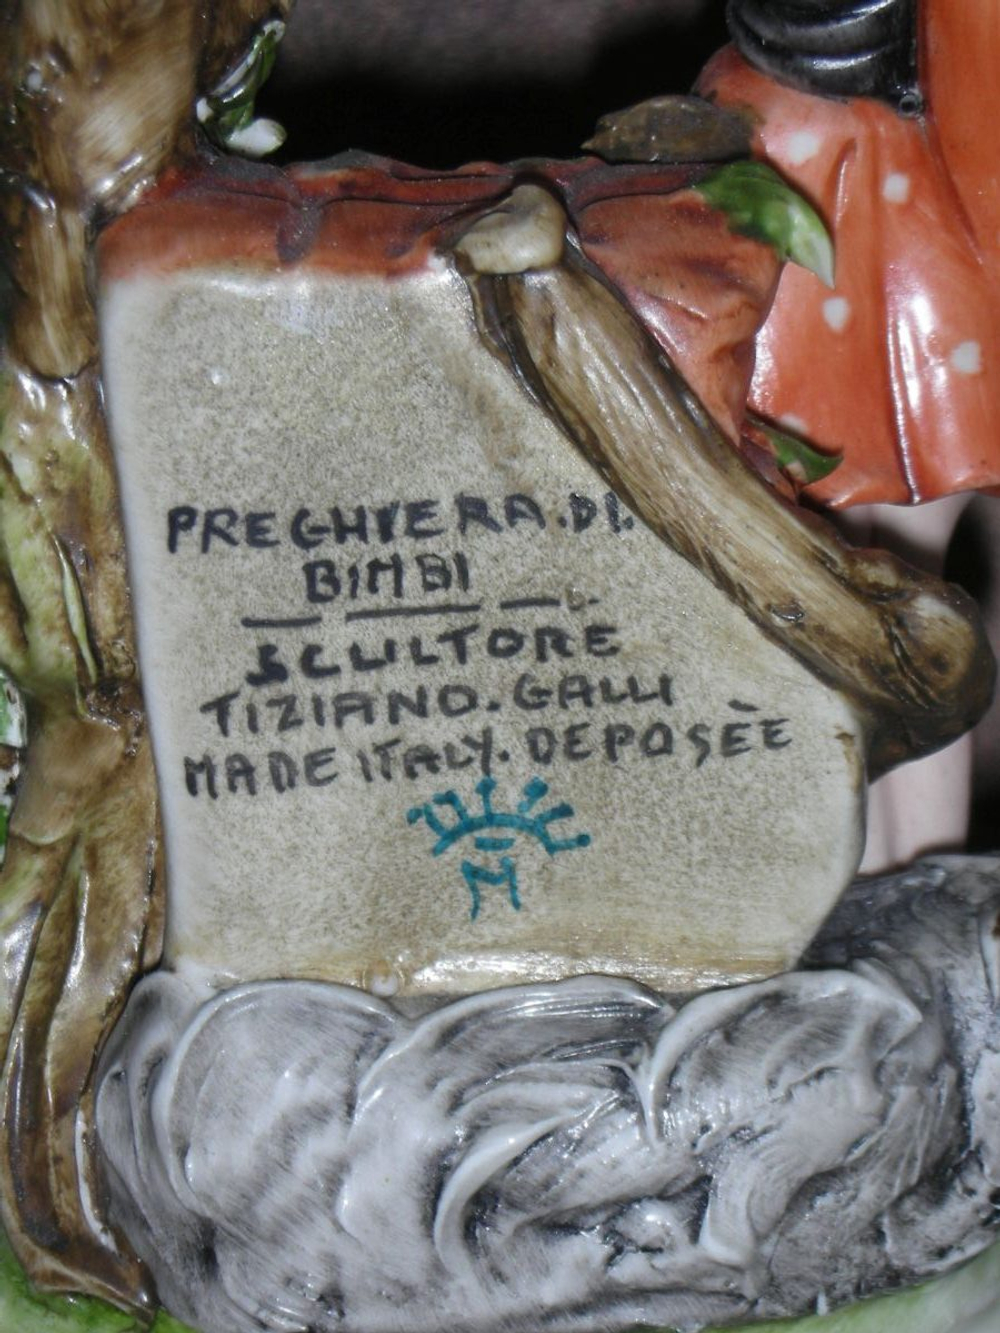 PREGHIERA.DI.
BIMBI
SCULTORE
TIZIANO.GALLI
MADE ITALY.DEPOSÈE
M